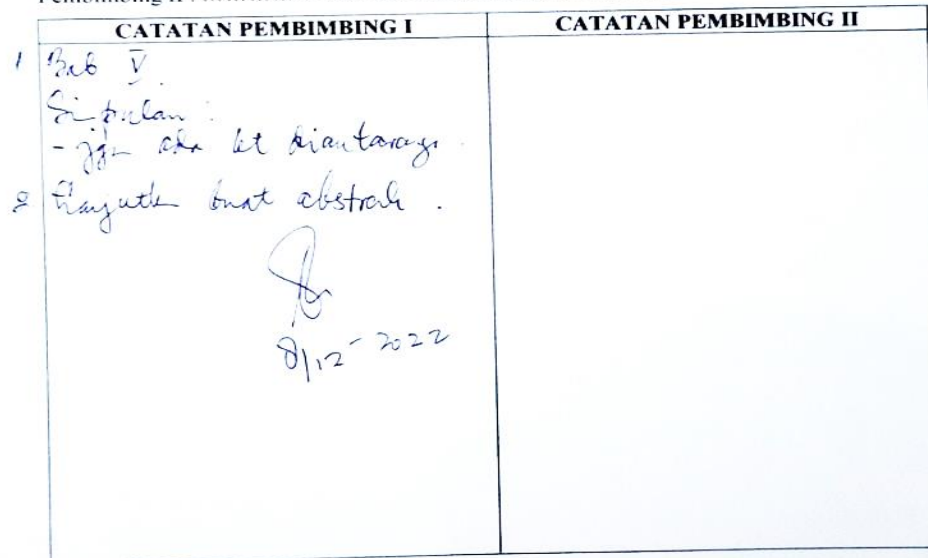 CATATAN PEMBIMBING I
CATATAN PEMBIMBING II
1 Bab V
Simpulan :
- jgn ada kt diantaranya
2 Lanjutk buat abstrak .
8/12 - 2022